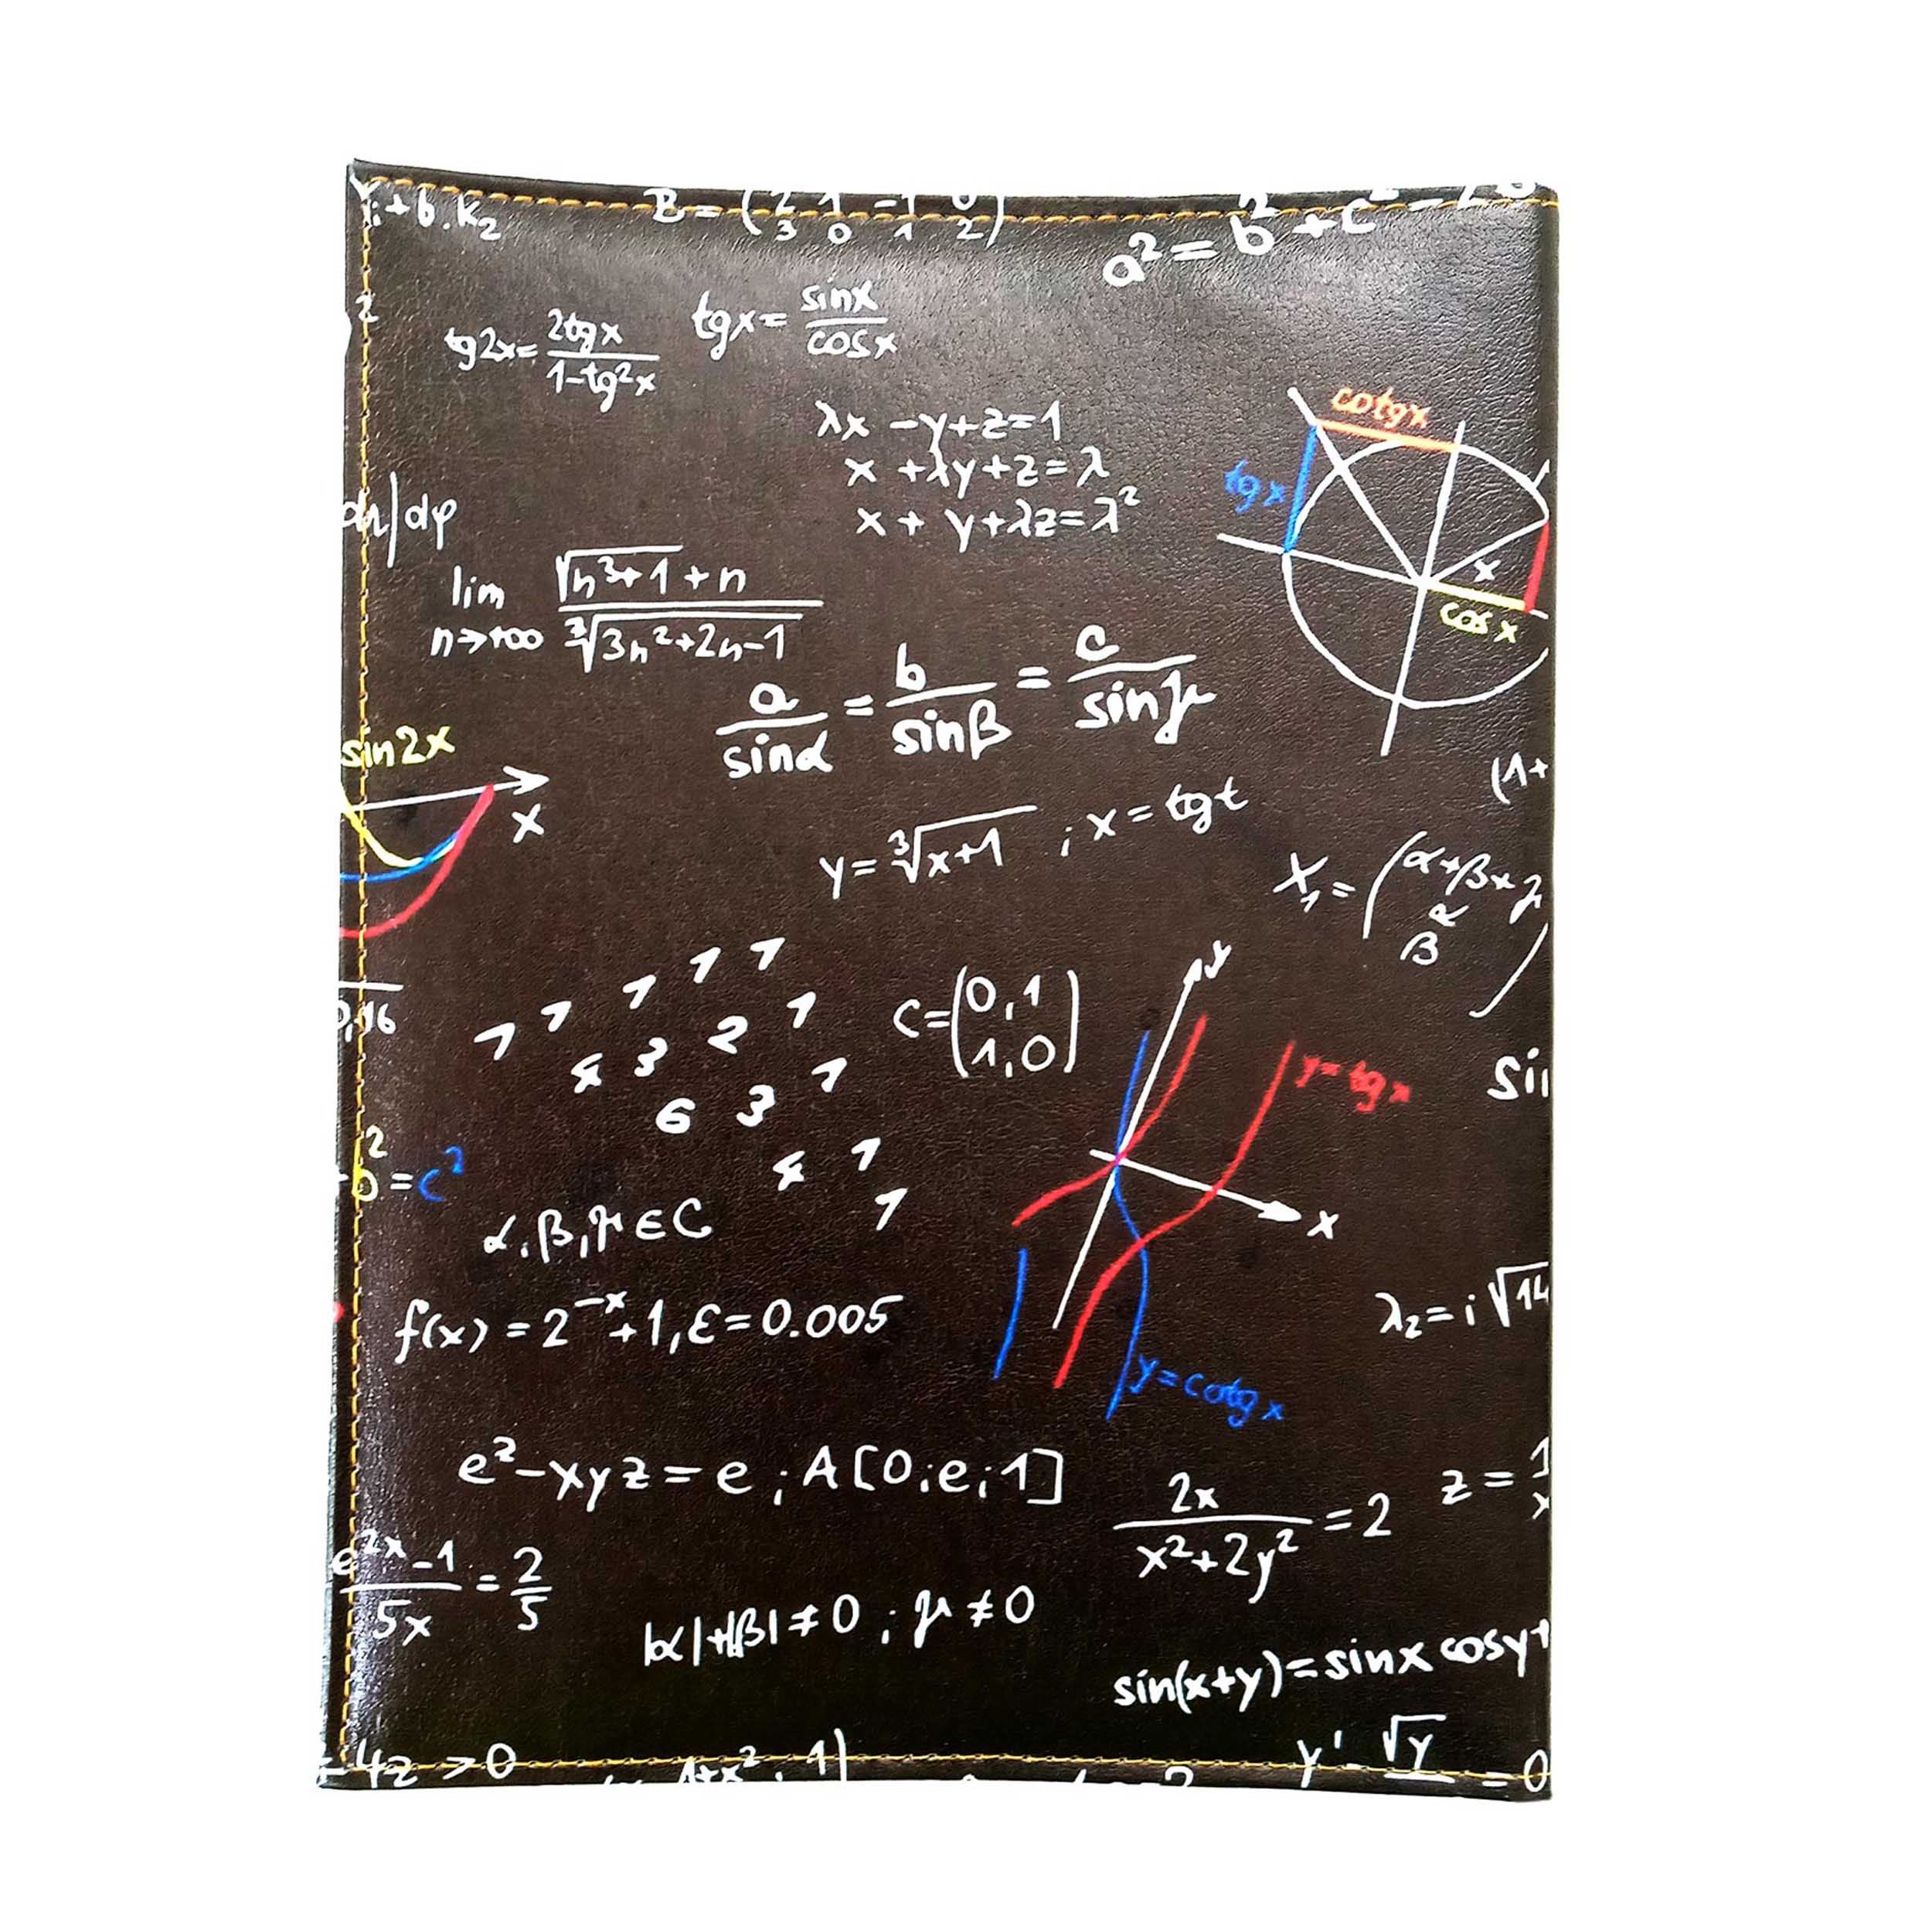 +b.k₂
B=(2 1 -1 0
3 0 1 2)
a²=b²+c²-2
2
tg2x=2tgx/1-tg²x
tgx=sinx/cosx
λx -y+z=1
x +λy+z=λ
x + y+λz=λ²
cotgx
tgx
x
cosx
/dφ
lim n→+∞ √n³+1+n/∛3n²+2n-1
a/sinα=b/sinβ=c/sinγ
sin2x
x
(1+
y=∛x+1 ; x=tgt
X₁=(α+βx
α
β
0,16
1 1 1 1 1
4 3 2 1
6 3 1
4 1
1
C=(0,1
1,0)
y
y=tgx
x
y=cotgx
sin
b²=c²
α,β,γ∈C
f(x)=2⁻ˣ+1,ε=0.005
λ₂=i√14
eᶻ-xyz=e ; A[0;e;1]
2x/x²+2y²=2
z=1/x
e²ˣ-1/5x=2/5
|α|+|β|≠0 ; γ≠0
sin(x+y)=sinx cosy+
-4z >0
1+x² , 1)
y'-√y
=0